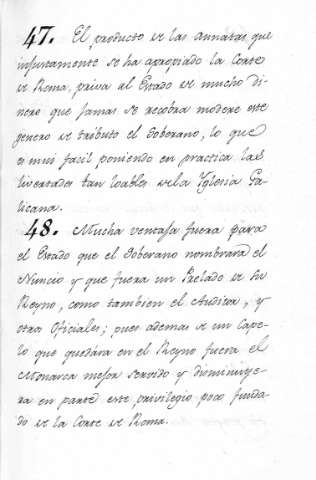 47. El producto de las annatas, que
injustamente se ha apropiado la Corte
de Roma, priva al Estado de mucho di-
nero que jamas se recobra modere este
genero de tributo el Soberano, lo que
es mui facil poniendo en practica las
livertades tan loables de la Yglesia Ga-
licana.
48. Mucha ventaja fuera para
el Estado que el Soberano nombrara el
Nuncio y que fuera un Prelado de su
Reyno, como tambien el Auditor, y
otros Oficiales; pues ademas de un Cape-
lo que quedára en el Reyno fuera el
Monarca mejor servido y disminuye-
ra en parte este privilegio poco funda-
do de la Corte de Roma.